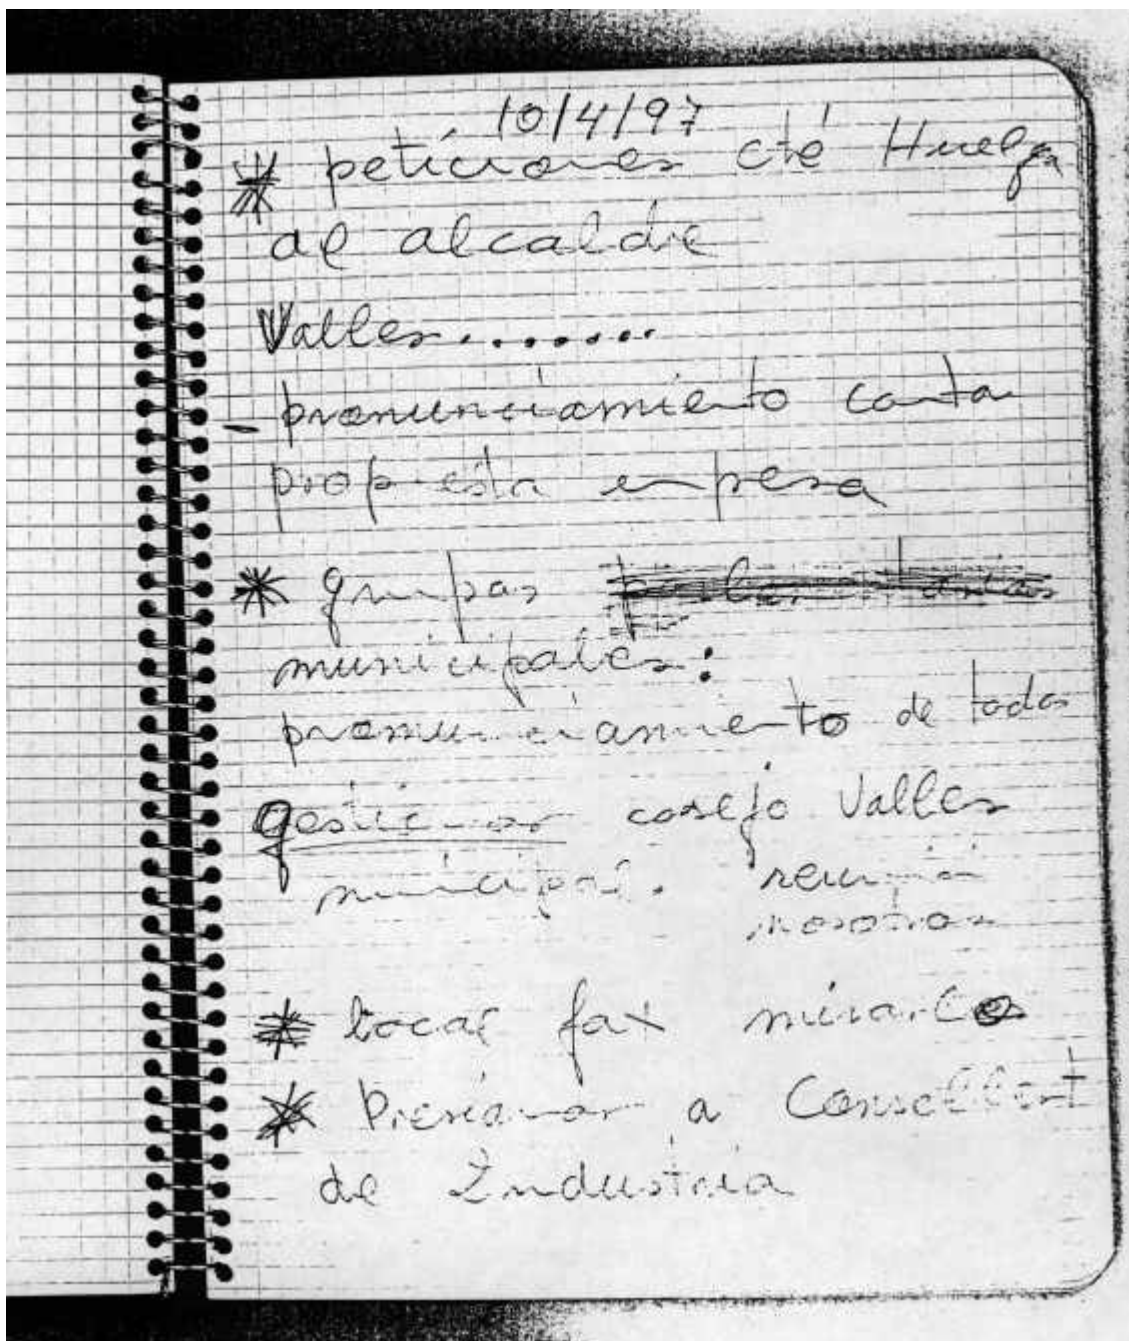 10/4/97
* peticiones cté Huelga
al alcalde
Valles........
- pronunciamiento conta
propuesta empresa
* grupos
municipales:
pronunciamiento de todos
gestionar cosejo Valles
municipal. reunión
nosotros
* local fax mirarlo
* Presionar a Conselllert
de Industria